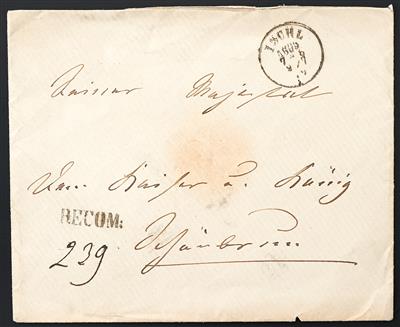 ISCHL
Seiner Majestät
Dem Kaiser u. König
RECOM:
Schönbrunn
239